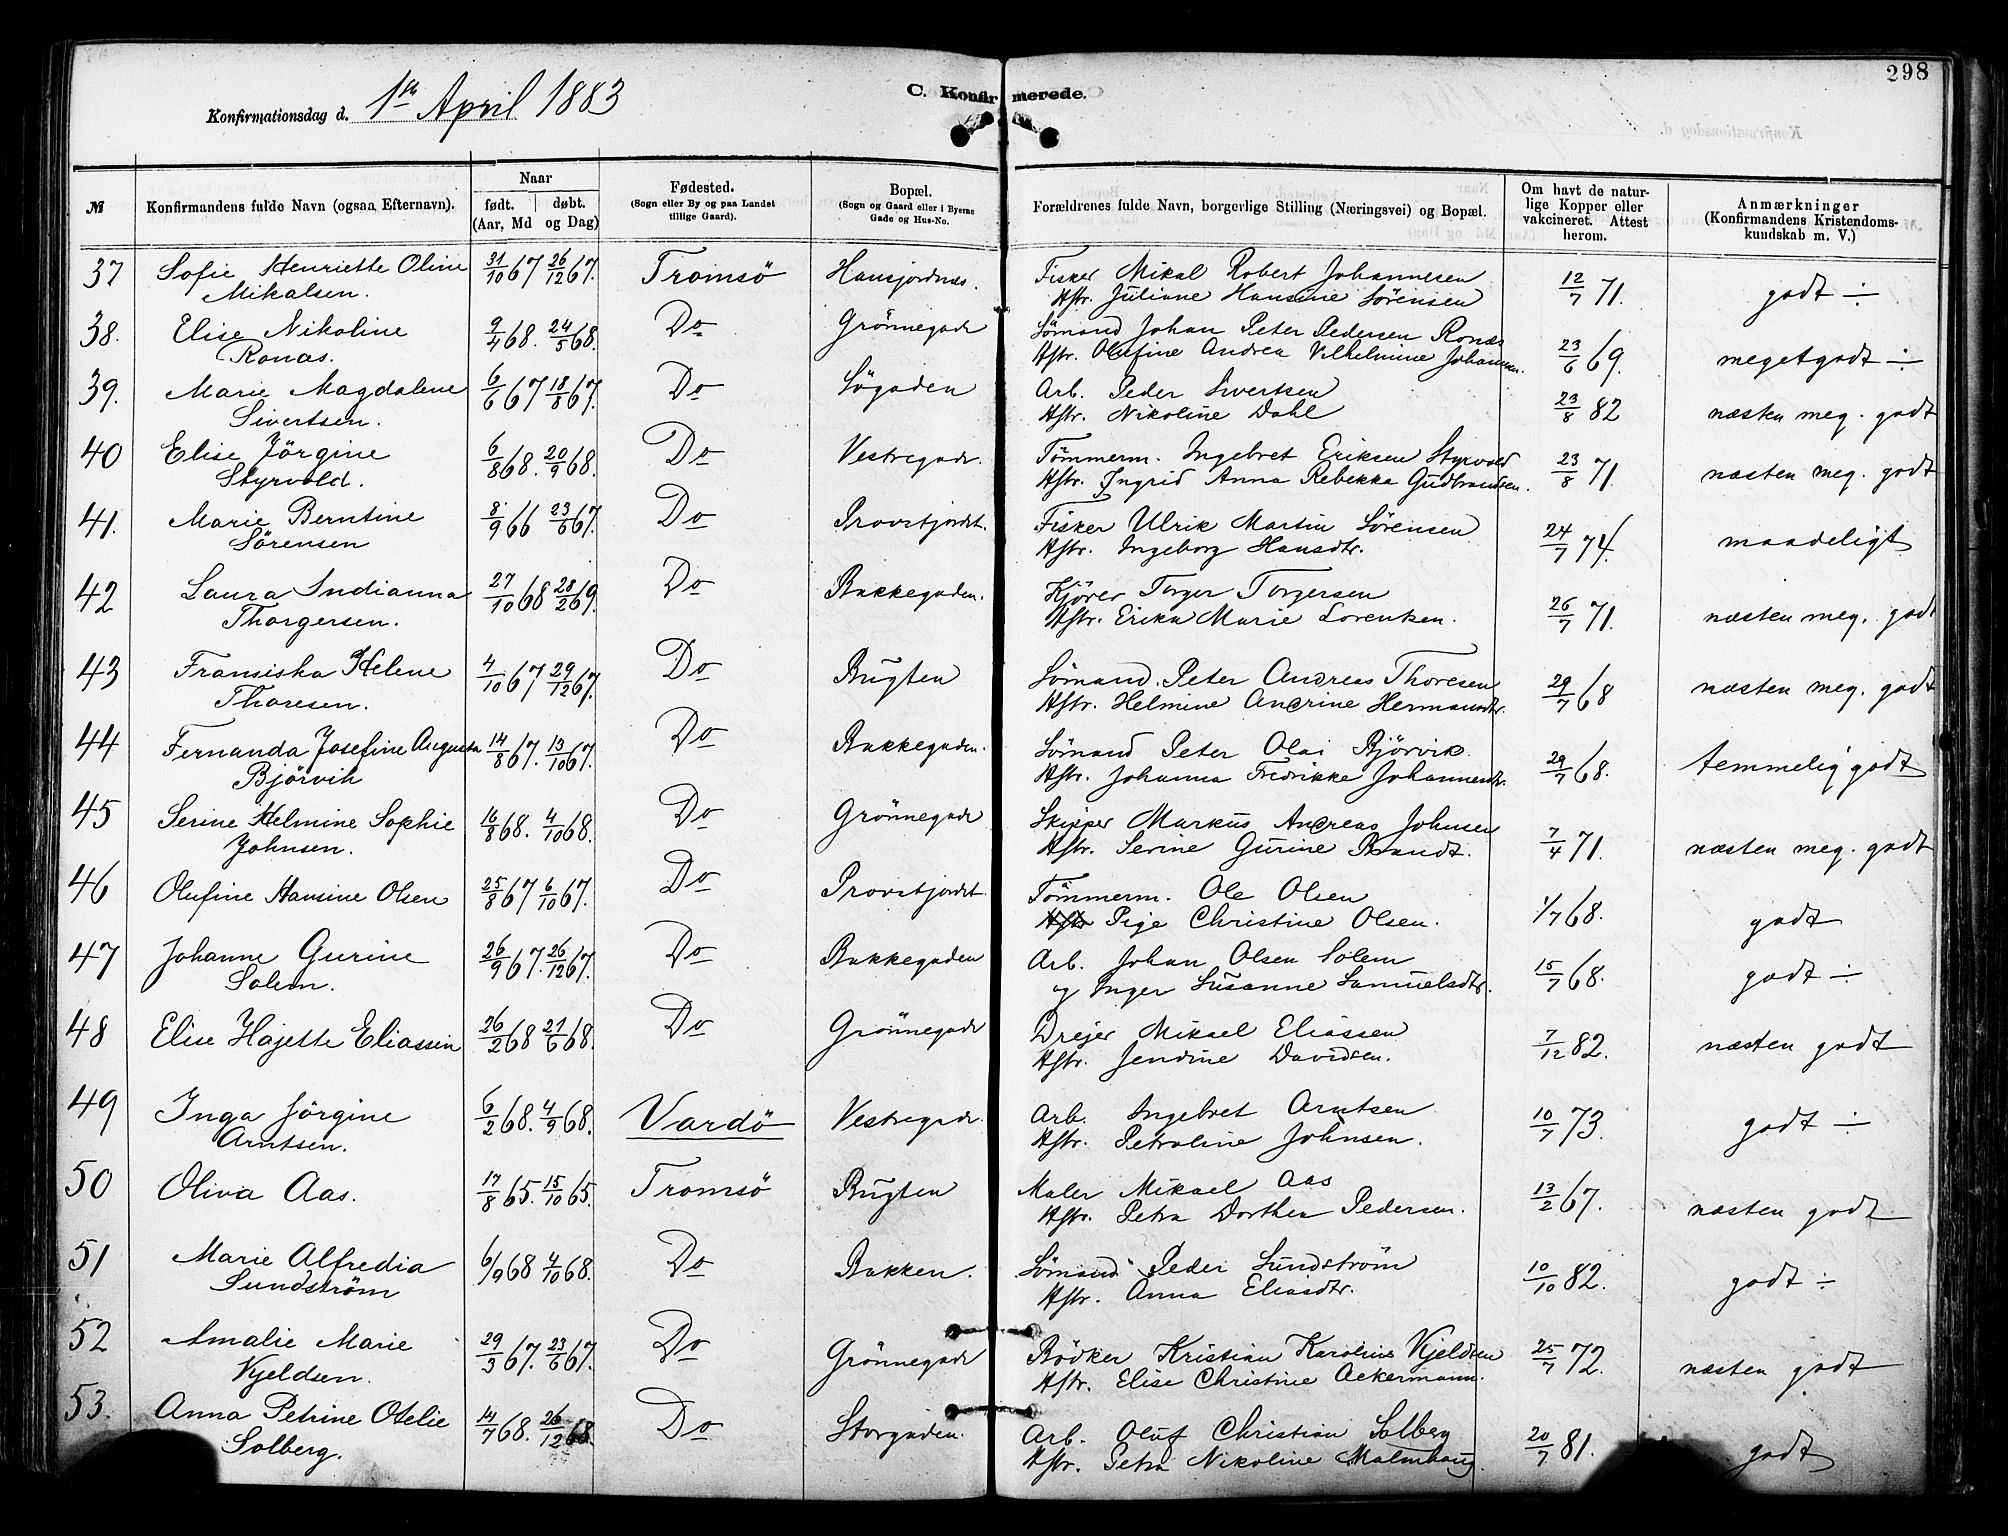 298
C. Konfirmerede.
Konfirmationsdag d. 1ste April 1883
№
Konfirmandens fulde Navn (ogsaa Efternavn).
Naar
født. døbt.
(Aar, Md og Dag)
Fødested.
(Sogn eller By og paa Landet
tillige Gaard).
Bopæl.
(Sogn og Gaard eller i Byerne
Gade og Hus-No.
Forældrenes fulde Navn, borgerlige Stilling (Næringsvei) og Bopæl.
Om havt de natur-
lige Kopper eller
vakcineret. Attest
herom.
Anmærkninger
(Konfirmandens Kristendoms-
kundskab m. V.)
37 Sofie Henriette Oline 31/10 67 26/12 67. Tromsö Hansjordnæs. Fisker Mikal Robert Johannesen 12/7 71. godt ÷
Mikalsen. Hstr. Juliane Hansine Sörensen
38. Elise Nikoline 9/4 68. 24/5 68. Do Grönnegade Sömand Johan Peter Pedersen Ronæs 23/6 69. megetgodt ÷
Ronæs. Hstr. Olufine Andrea Vilhelmine Johansen.
39. Marie Magdalene 6/6 67 18/8 67. Do Søgaden Arb. Peder Sivertsen 23/8 82 næsten meg. godt
Sivertsen. Hstr. Nikoline Dahl
40 Elise Jörgine 6/8 68. 20/9 68. Do Vestregade. Tömmerm. Ingebret Eriksen Styrvold 23/8 71. næsten meg. godt
Styrvold. Hstr. Ingrid Anna Rebekka Gudbrandsen.
41. Marie Berntine 8/9 66 23/6 67. Do Provstjordet. Fisker Ulrik Martin Sörensen 24/7 74. maadeligt
Sörensen Hstr. Ingeborg Hansdtr.
42 Laura Indianna 27/10 68 28/2 69. Do Bakkegaden. Kjörer Torger Torgersen 26/7 71. næsten meg. godt
Thorgersen. Hstr. Erika Marie Lorentsen.
43 Fransiska Helene 4/10 67 29/12 67. Do Bugten Sömand. Peter Andreas Thoresen 29/7 68 næsten meg. godt
Thoresen. Hstr. Helmine Andrine Hermansdtr.
44 Fernanda Josefine Augusta 14/8 67. 13/10 67. Do Bakkegaden. Sömand Peter Olai Björvik 29/7 68. temmelig godt
Björvik Hstr. Johanna Fredrikke Johannesdtr.
45 Serine Helmine Sophie 16/8 68. 4/10 68. Do Grönnegade Skipper Markus Andreas Johnsen 7/4 71. næsten meg. godt
Johnsen. Hstr. Serine Gurine Brandt.
46 Olufine Hansine Olsen 25/8 67 6/10 67. Do Provstjordet. Tömmerm. Ole Olsen 1/7 68. godt
Hstr Pige Christine Olsen.
47 Johanne Gurine 26/9 67. 26/12 67. Do Bakkegaden Arb. Johan Olsen Solem 15/7 68. godt ÷
Solem. og Inger Susanne Samuelsdtr.
48 Elise Hajette Eliassen 26/2 68 21/6 68. Do Grönnegade Drejer Mikael Eliassen 7/12 82. næsten godt
Hstr. Jendine Davidsen.
49 Inga Jörgine 6/2 68. 4/9 68. Vardö Vestregade. Arb. Ingebret Arntsen 10/7 73. godt ÷
Arntsen. Hstr. Petroline Johnsen.
50 Oliva Aas. 17/8 65. 15/10 65. Tromsö Bugten Maler Mikael Aas 13/2 67. næsten godt
Hstr. Petra Dorthea Pedersen.
51 Marie Alfredia 6/9 68 4/10 68. Do Bakken. Sömand Peder Sundström 10/10 82. godt ÷
Sundström Hstr. Anna Eliasdtr.
52 Amalie Marie 29/3 67. 23/6 67. Do Grönnegade Bödker Kristian Karolius Kjeldsen 25/7 72. næsten godt
Kjeldsen. Hstr. Elise Christine Ackermann.
53. Anna Petrine Otelie 14/7 68. 26/12 68. Do Storgaden. Arb. Oluf Christian Solberg 20/7 81. godt
Solberg. Hstr. Petra Nikoline Malmhaug.